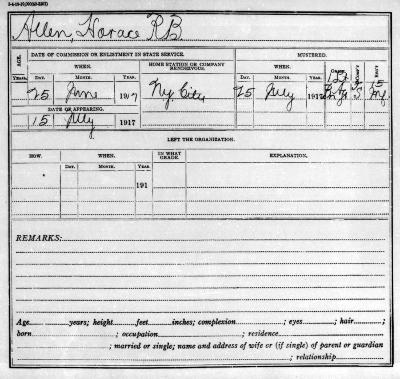 Allen, Horace R.B.
AGE. DATE OF COMMISSION OR ENLISTMENT IN STATE SERVICE. MUSTERED.
WHEN. HOME STATION OR COMPANY RENDEZVOUS. WHEN. GRADE
YEARS. DAY. MONTH. YEAR. DAY. MONTH. YEAR.
25 June 1917 Ny. City 25 July 1917
DATE OF APPEARING.
15 July 1917
LEFT THE ORGANIZATION.
HOW. WHEN. IN WHAT GRADE. EXPLANATION.
DAY. MONTH. YEAR.
191
REMARKS:
Age years; height feet inches; complexion ; eyes ; hair ;
born ; occupation ; residence
; married or single; name and address of wife or (if single) of parent or guardian
; relationship